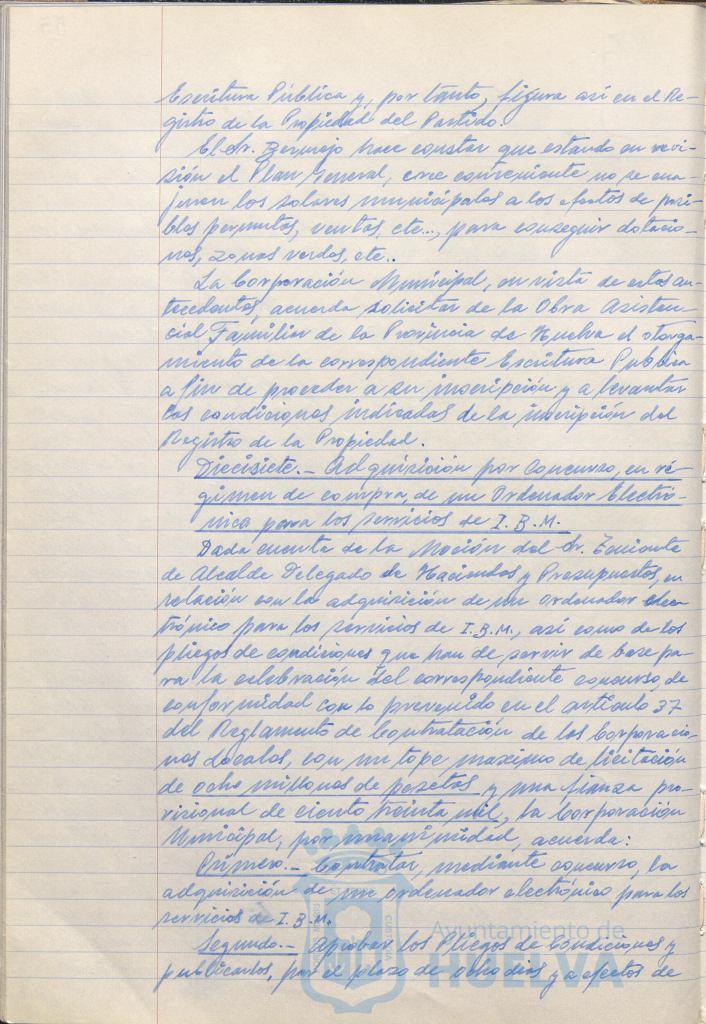 Escritura Pública y, por tanto, figura así en el Re-
gistro de la Propiedad del Partido.
El Sr. Bermejo hace constar que estando en revi-
sión el Plan General, cree conveniente no se ena-
jenen los solares municipales a los efectos de posi-
bles permutas, ventas, etc..., para conseguir dotacio-
nes, zonas verdes, etc..
La Corporación Municipal, en vista de estos an-
tecedentes, acuerda solicitar de la Obra Asisten-
cial Familiar de la Provincia de Huelva el otorga-
miento de la correspondiente Escritura Pública
a fin de proceder a su inscripción y a levantar
las condiciones indicadas de la inscripción del
Registro de la Propiedad.
Diecisiete.- Adquisición por Concurso, en ré-
gimen de compra, de un Ordenador Electró-
nico para los servicios de I.B.M.
Dada cuenta de la Moción del Sr. Teniente
de Alcalde Delegado de Hacienda y Presupuestos, en
relación con la adquisición de un ordenador elec-
trónico para los servicios de I.B.M., así como de los
pliegos de condiciones que han de servir de base pa-
ra la celebración del correspondiente concurso, de
conformidad con lo prevenido en el artículo 37
del Reglamento de Contratación de las Corporacio-
nes Locales, con un tope maximo de licitación
de ocho millones de pesetas y una fianza pro-
visional de ciento treinta mil, la Corporación
Municipal, por unanimidad, acuerda:
Primero.- Contratar, mediante concurso, la
adquisición de un ordenador electrónico para los
servicios de I.B.M.
Segundo.- Aprobar los Pliegos de Condiciones y
publicarlos, por el plazo de ocho dias y a efectos de
Ayuntamiento de
HUELVA